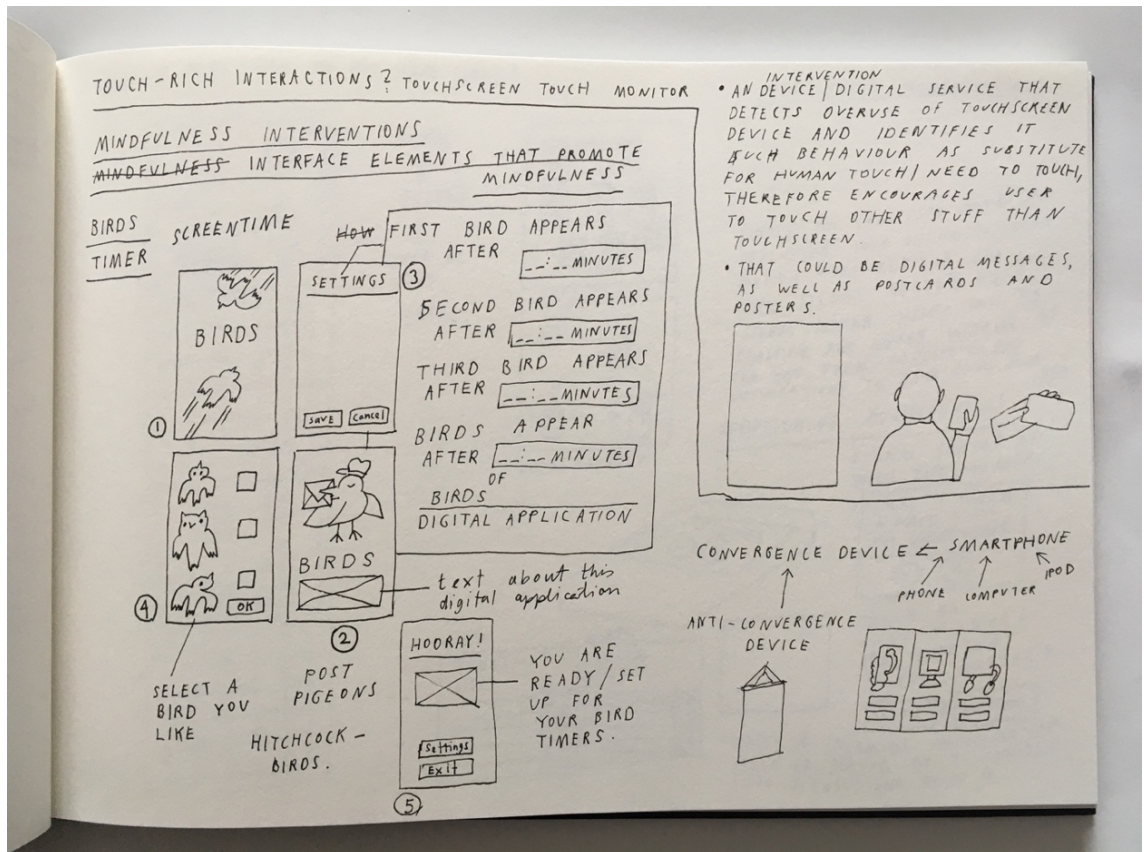 TOUCH-RICH INTERACTIONS? TOUCHSCREEN TOUCH MONITOR
MINDFULNESS INTERVENTIONS
MINDFULNESS INTERFACE ELEMENTS THAT PROMOTE
MINDFULNESS
BIRDS
TIMER
SCREENTIME
BIRDS
①
SETTINGS
save cancel
③
HOW FIRST BIRD APPEARS
AFTER __:__ MINUTES
SECOND BIRD APPEARS
AFTER __:__ MINUTES
THIRD BIRD APPEARS
AFTER __:__ MINUTES
BIRDS APPEAR
AFTER __:__ MINUTES
OF
BIRDS
DIGITAL APPLICATION
OK
④
SELECT A
BIRD YOU
LIKE
BIRDS
②
text about this
digital application
POST
PIGEONS
HITCHCOCK-
BIRDS.
HOORAY!
Settings
Exit
⑤
YOU ARE
READY/SET
UP FOR
YOUR BIRD
TIMERS.
INTERVENTION
• AN DEVICE/DIGITAL SERVICE THAT
DETECTS OVERUSE OF TOUCHSCREEN
DEVICE AND IDENTIFIES IT
SUCH BEHAVIOUR AS SUBSTITUTE
FOR HUMAN TOUCH/NEED TO TOUCH,
THEREFORE ENCOURAGES USER
TO TOUCH OTHER STUFF THAN
TOUCHSCREEN.
• THAT COULD BE DIGITAL MESSAGES,
AS WELL AS POSTCARDS AND
POSTERS.
CONVERGENCE DEVICE ← SMARTPHONE
PHONE COMPUTER IPOD
ANTI-CONVERGENCE
DEVICE